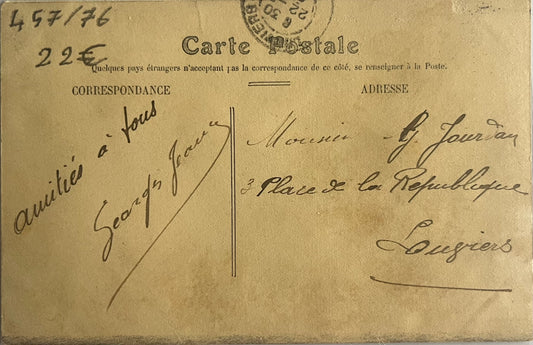 457/76
22€
Carte Postale
Quelques pays étrangers n'acceptent pas la correspondance de ce côté, se renseigner à la Poste.
CORRESPONDANCE
ADRESSE
amitiés à tous
Georges
Monsieur G. Jourdan
3 Place de la République